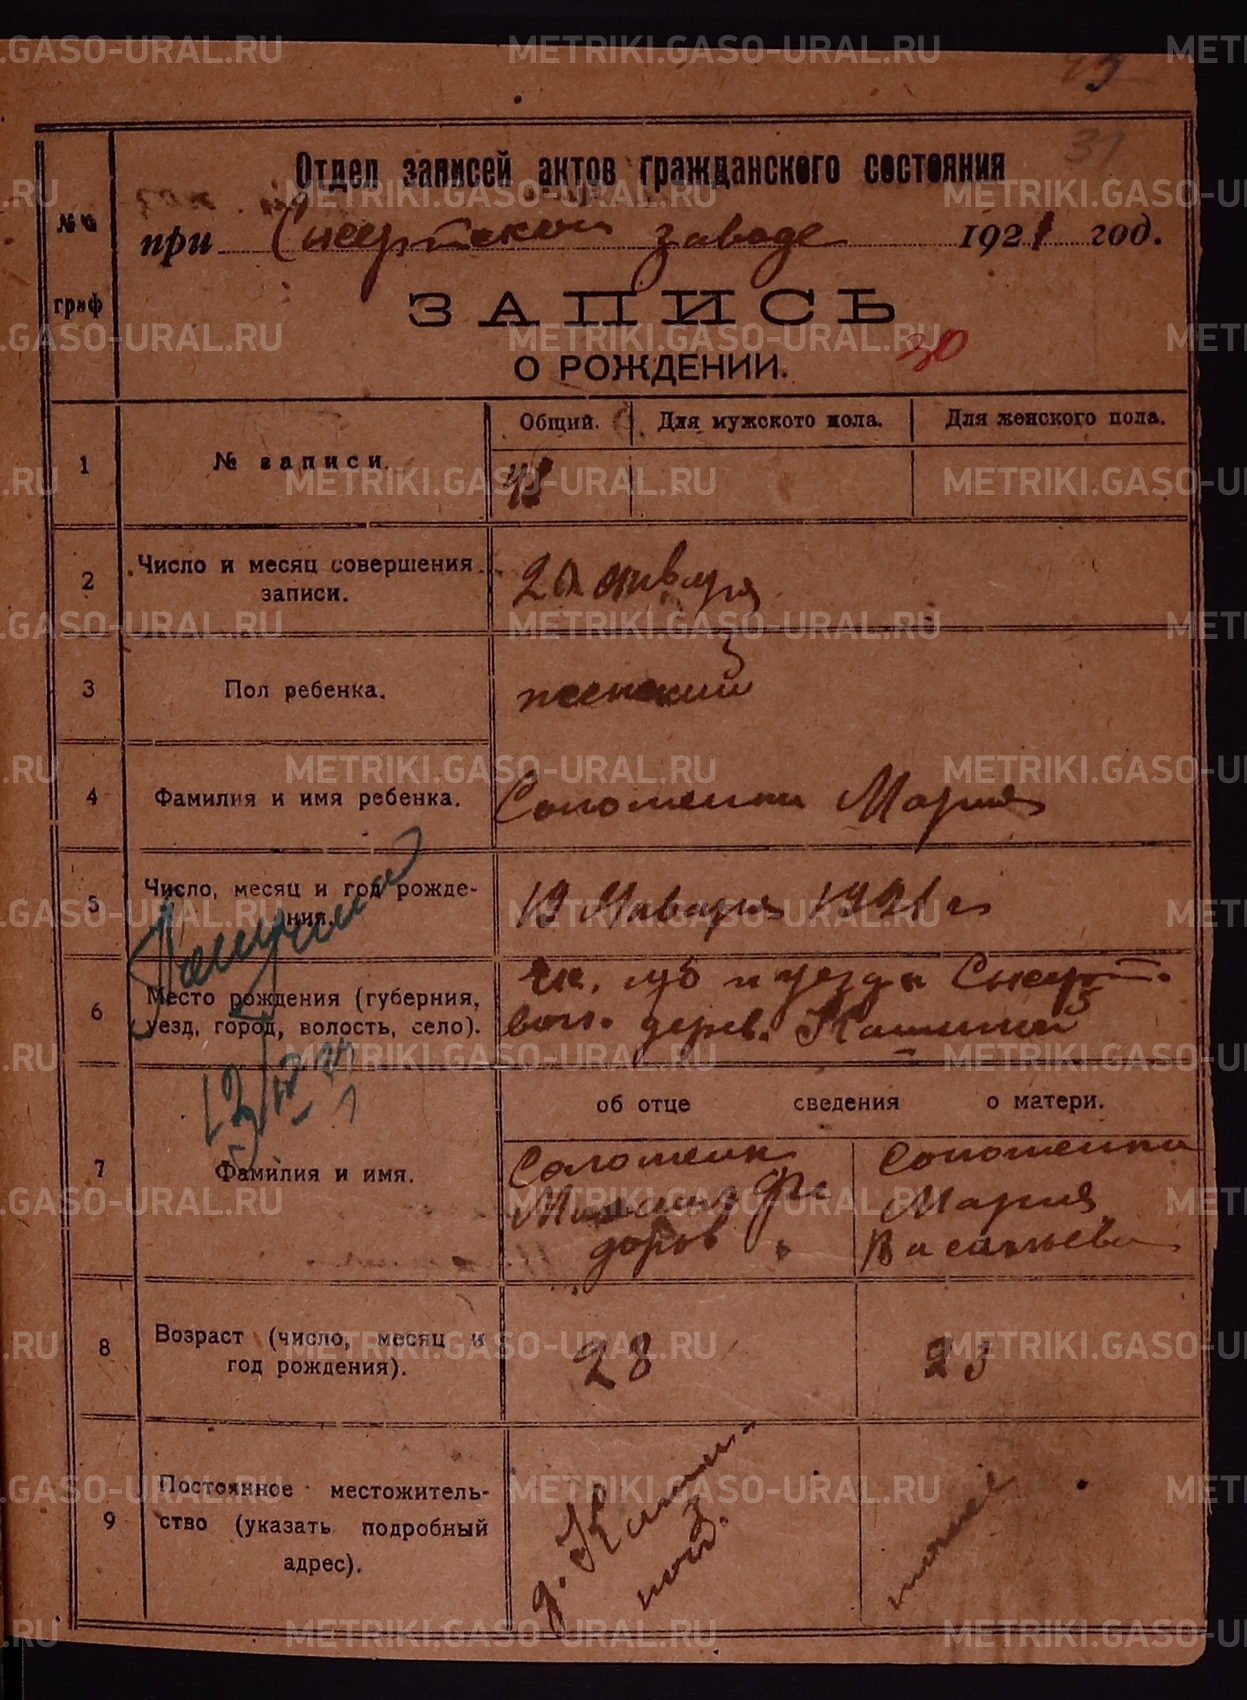 METRIKI.GASO-URAL.RU
31
Отдел записей актов гражданского состояния
№ №
граф
при Сысертском заводе 1921 год.
ЗАПИСЬ
О РОЖДЕНИИ.
30
Общий. Для мужского пола. Для женского пола.
1 № записи. 48
2 Число и месяц совершения записи. января
3 Пол ребенка. женский
4 Фамилия и имя ребенка. Мария
5 Число, месяц и год рождения. 19 Января 1921 г
6 Место рождения (губерния, уезд, город, волость, село). Ек. губ и уезда Сысерт.
вол. дерев. Кашиной
об отце сведения о матери.
7 Фамилия и имя.
Мария
Васильева
8 Возраст (число, месяц и год рождения). 28 23
9 Постоянное местожительство (указать подробный адрес). д. Кашиной